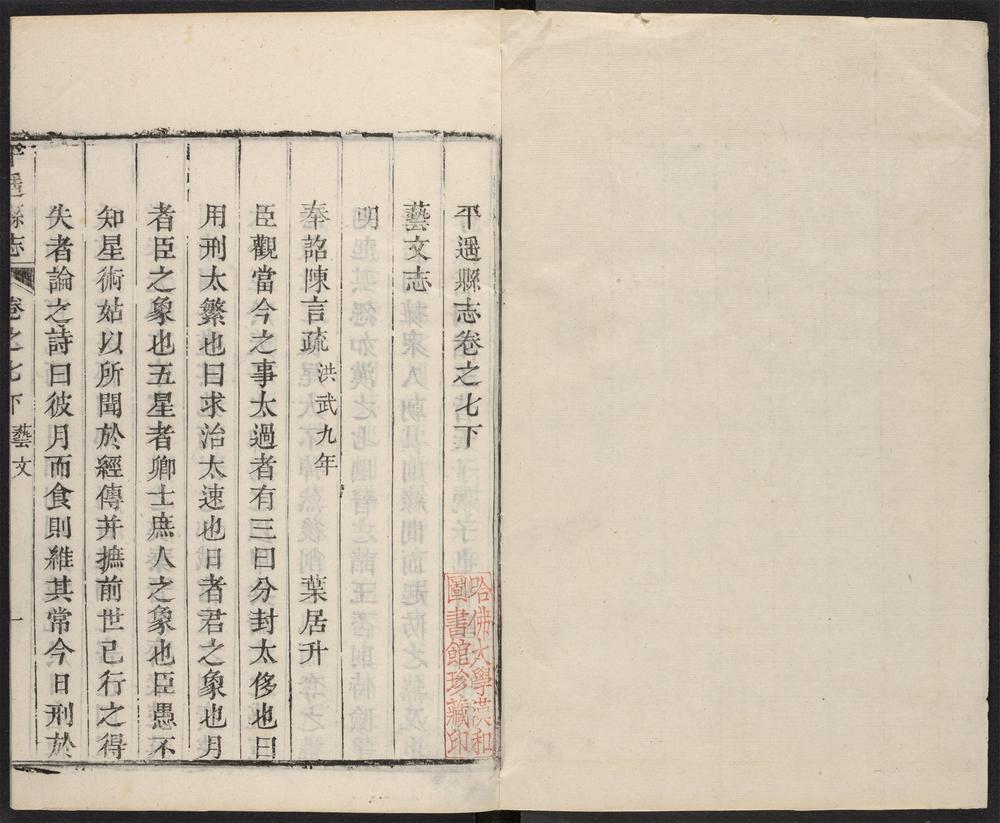 平遥縣志卷之七下
藝文志
明
奉詔陳言疏 洪武九年 葉居升
臣觀當今之事太過者有三曰分封太侈也曰
用刑太繁也曰求治太速也日者君之象也月
者臣之象也五星者卿士庶人之象也臣愚不
知星術姑以所聞於經傳并摭前世已行之得
失者論之詩曰彼月而食則維其常今日刑於
平遥縣志 卷之七下 藝文 一
哈佛大學漢和
圖書館珍藏印